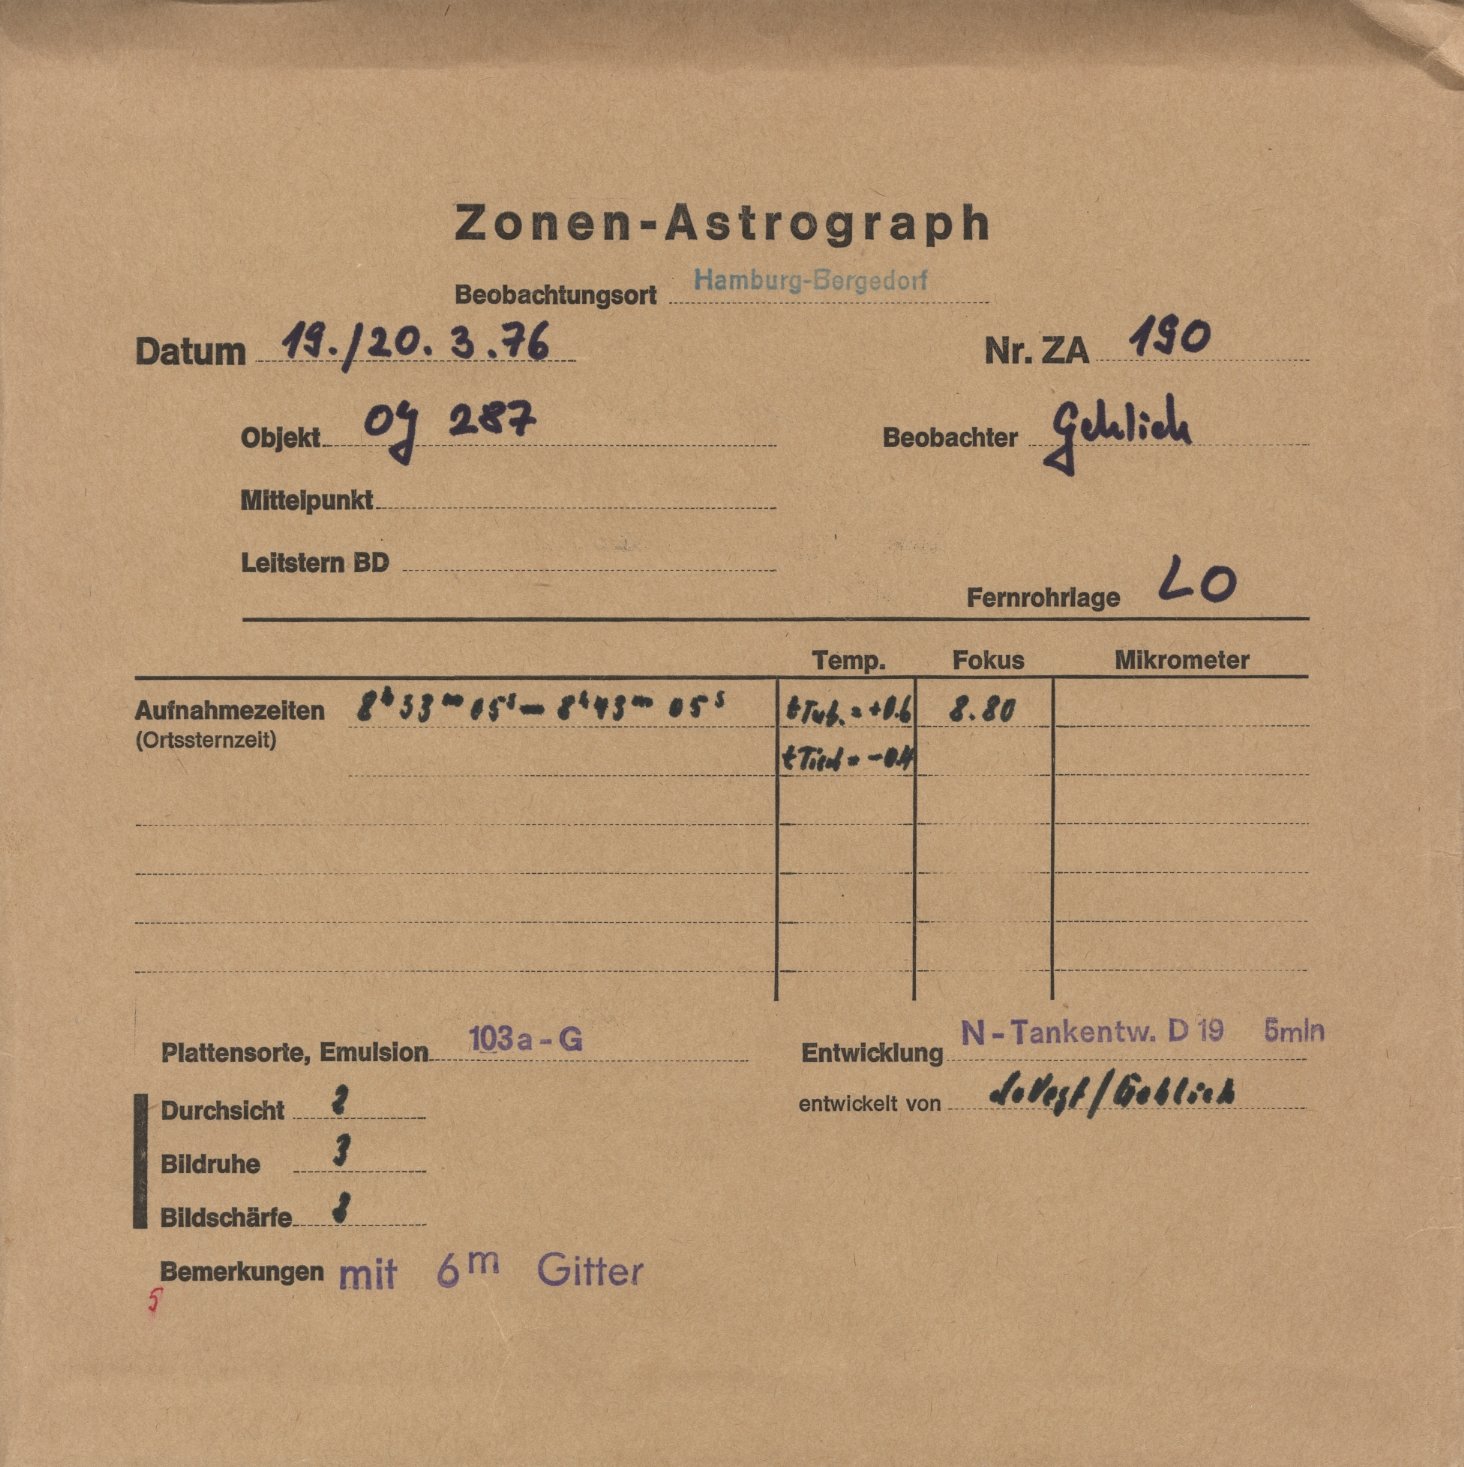 Zonen-Astrograph
Beobachtungsort Hamburg-Bergedorf
Datum 19./20. 3.76 Nr. ZA 190
Objekt OJ 287 Beobachter Gehlich
Mittelpunkt
Leitstern BD
Fernrohrlage LO
Temp. Fokus Mikrometer
Aufnahmezeiten 8h 33m 05s – 8h 43m 05s tTub. = +0.6 8.80
(Ortssternzeit)
tTisch = -0.4
Plattensorte, Emulsion 103a-G Entwicklung N-Tankentw. D 19 5min
Durchsicht 2 entwickelt von deVegt/Gehlich
Bildruhe 3
Bildschärfe 2
Bemerkungen mit 6m Gitter
5